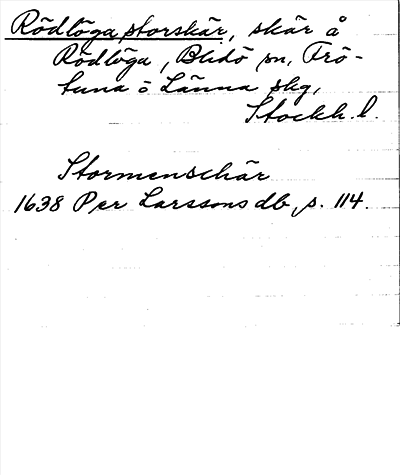 Rödlöga storskär, skär å
Rödlöga, Blidö sn, Frö-
tuna ö Länna skg,
Stockh. l.
Stormenschär
1638 Per Larssons db, s. 114.